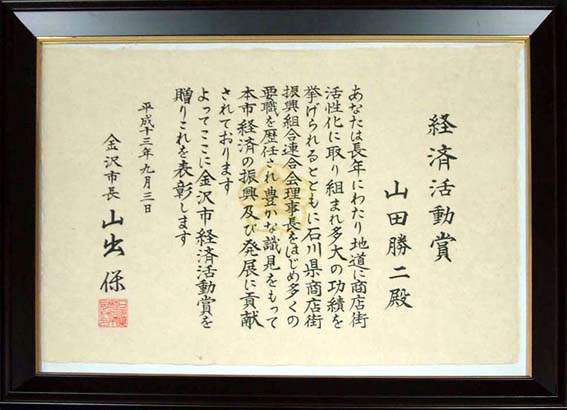 経済活動賞
山田勝二殿
あなたは長年にわたり地道に商店街
活性化に取り組まれ多大の功績を
挙げられるとともに石川県商店街
振興組合連合会理事長をはじめ多くの
要職を歴任され豊かな識見をもって
本市経済の振興及び発展に貢献
されております
よってここに金沢市経済活動賞を
贈りこれを表彰します
平成十三年九月三日
金沢市長 山出保